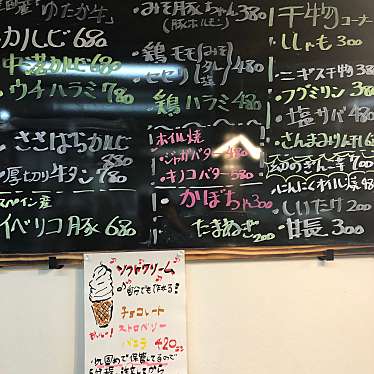 国産「ゆたか牛」
カルビ 680
中落カルビ 680
ウチハラミ 780
ささばらカルビ
880
・厚切り牛タン 780
スペイン産
イベリコ豚 680
・みそ豚ちゃん 380
(豚ホルモン)
・鶏モモ
セセリ
・鶏ハラミ 480
ホイル焼
・ジャガバター 480
・キノコバター 580
・かぼちゃ 300
・たまねぎ 200
干物コーナー
・ししゃも 300
・ニギス干物 380
・フグミリン 380
・塩サバ 480
・さんまみりん干し
・ぎんなん
・にんにくオイル焼
・しいたけ 200
・甘長 300
ソフトクリーム
自分でも作れる!
チョコレート
おいしい!
ストロベリー
バニラ 420
固めて保管してるので
5分程